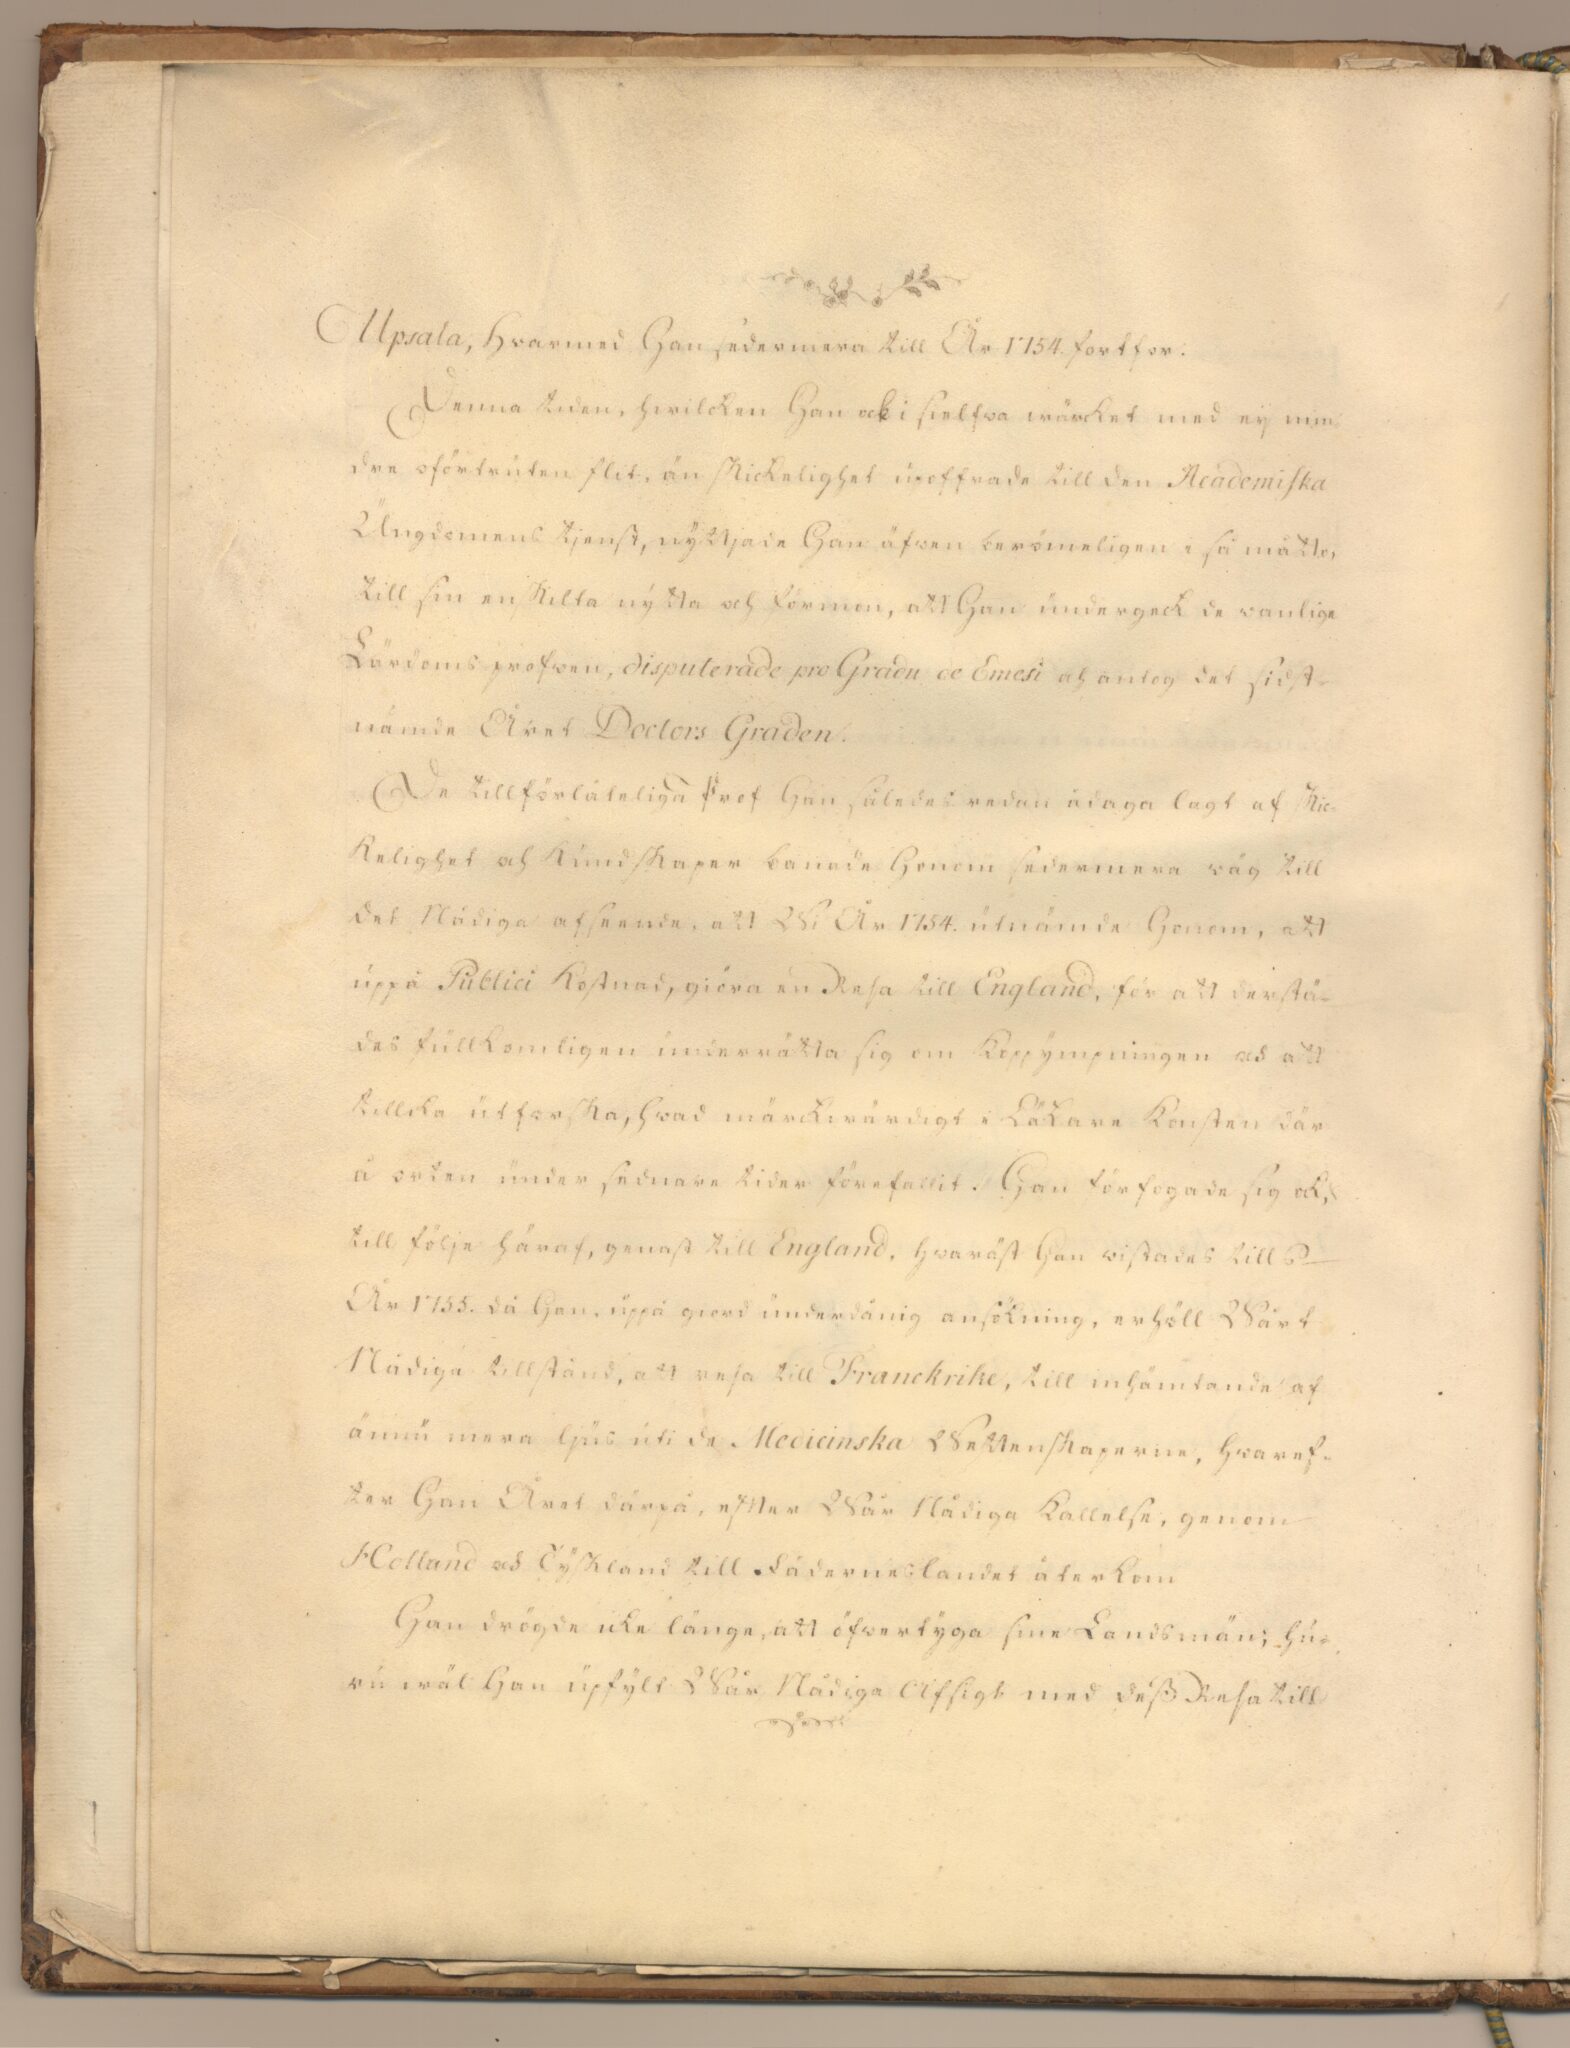 Upsala, hwarmed Han sedermera till År 1754. fortfor.
Denna tiden, hwilcken Han ock i sielfwa wärcket med ej min¬
dre oförtruten flit, än skickelighet upoffrade till den Academiska
Ungdomens tjenst, nyttjade Han äfwen berömeligen i så måtto,
till sin enskilta nytta och förmon, att Han undergeck de wanlige
Lärdoms profwen, disputerade pro Gradu de Emesi och antog det sidst-
nämde Året Doctors Graden.
De tillförlåteliga Prof Han således redan ådaga lagt af Skic-
kelighet och Kundskaper banade Honom sedermera wäg till
det Nådiga afseende, att Wi År 1754. utnämde Honom, att
uppå Publici Kostnad, giöra en Resa till England, för att derstä-
des fullkomligen underrätta sig om Koppympningen och att
tillika utforska, hwad märckwärdigt i Läkare Konsten där
å orten under sednare tider förefallit. Han förfogade sig ock,
till följe häraf, genast till England, hwaräst Han wistades till
År 1755. då Han, uppå giord underdånig ansökning, erhöll Wårt
Nådiga tillstånd, att resa till Franckrike, till inhämtande af
ännu mera ljus uti de Medicinska Wettenskaperne, hwaref-
ter Han Året därpå, efter Wår Nådiga Kallelse, genom
Holland och Tyskland till Fäderneslandet återkom
Han drögde icke länge, att öfwertyga sine Landsmän; hu-
ru wäl Han upfylt Wår Nådiga Afsigt med deß Resa till